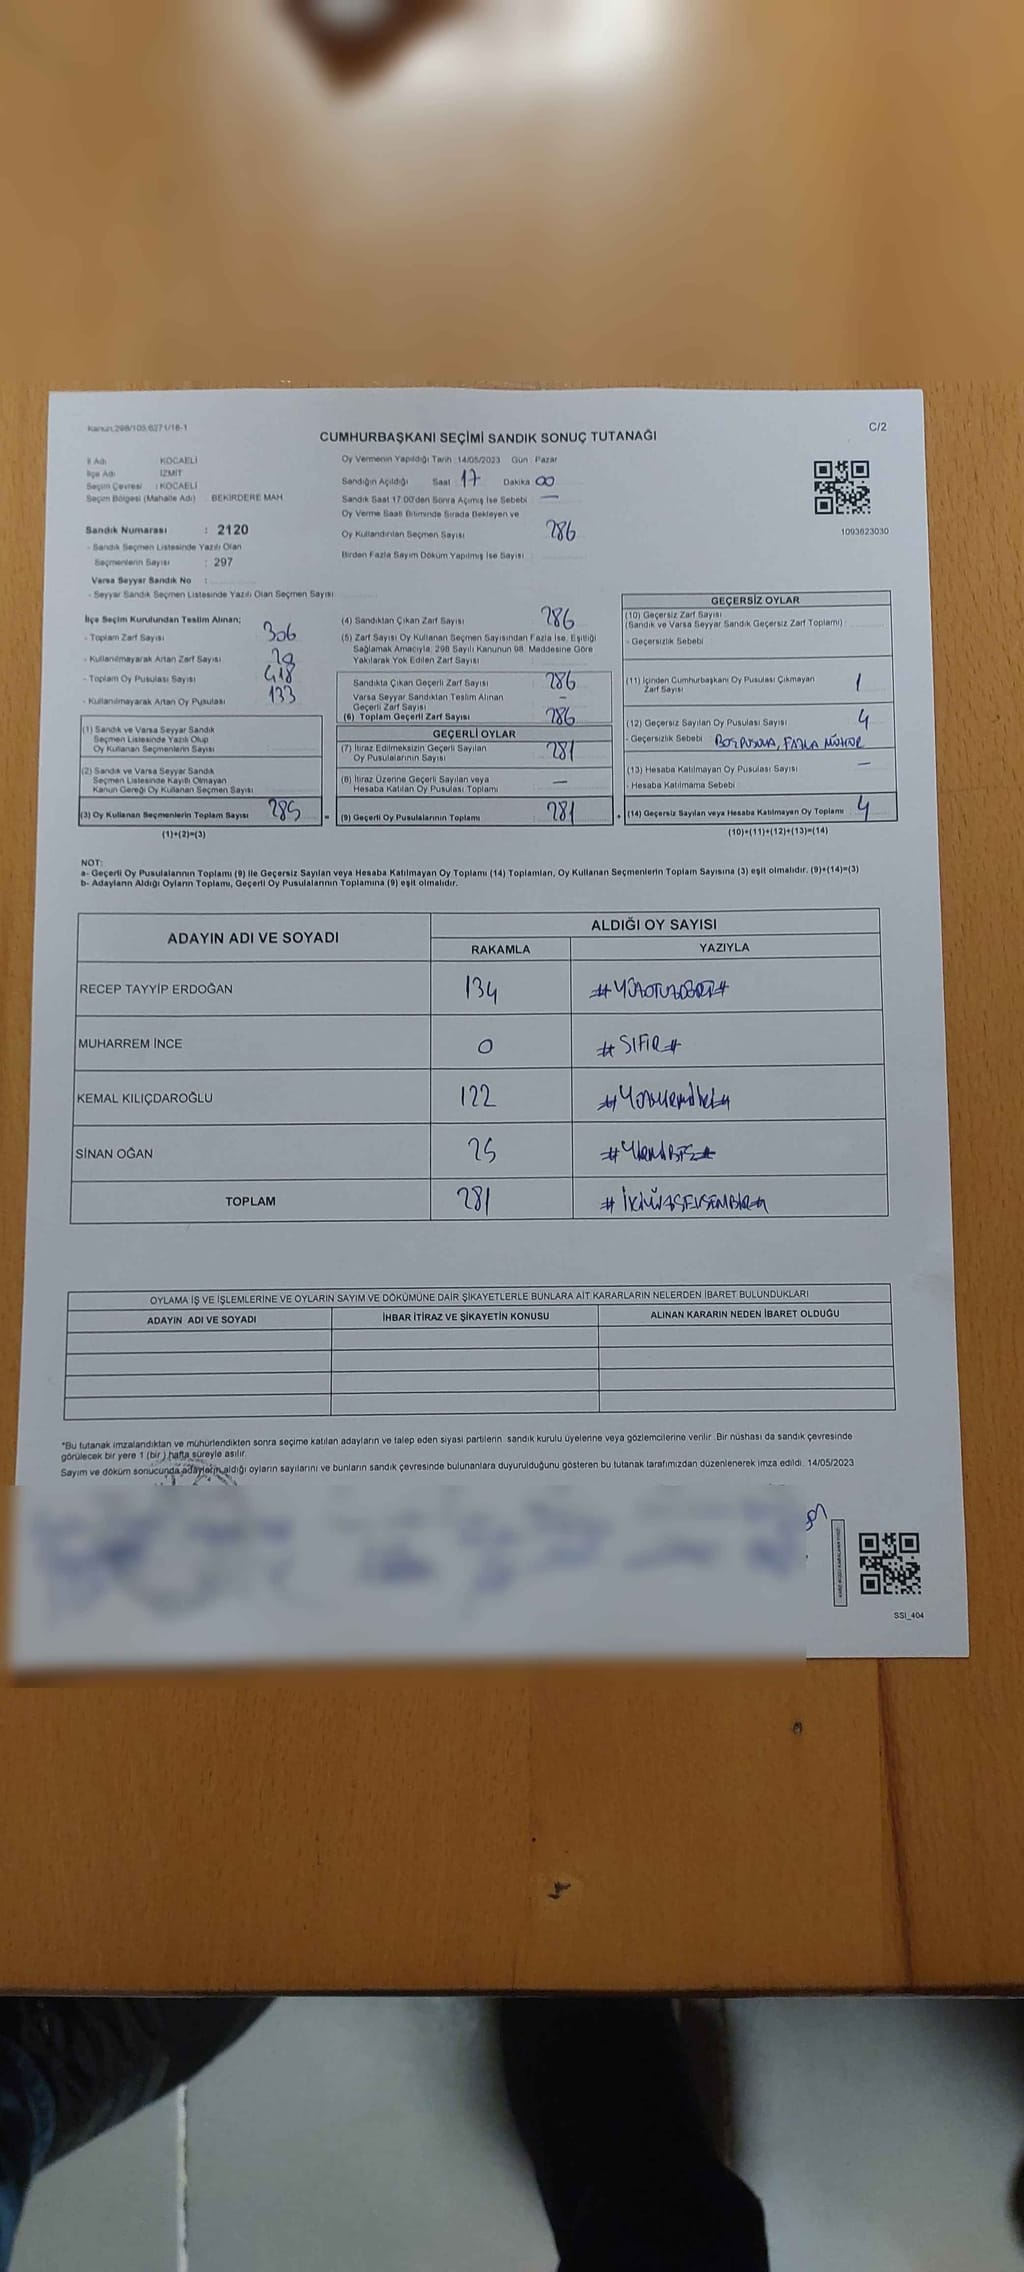 Kanun:298/105;6271/16-1
C/2
CUMHURBAŞKANI SEÇİMİ SANDIK SONUÇ TUTANAĞI
İl Adı : KOCAELİ
İlçe Adı : İZMİT
Seçim Çevresi : KOCAELİ
Seçim Bölgesi (Mahalle Adı) : BEKİRDERE MAH
Sandık Numarası : 2120
- Sandık Seçmen Listesinde Yazılı Olan
Seçmenlerin Sayısı : 297
Varsa Seyyar Sandık No :
- Seyyar Sandık Seçmen Listesinde Yazılı Olan Seçmen Sayısı
Oy Vermenin Yapıldığı Tarih :14/05/2023 Gün : Pazar
Sandığın Açıldığı Saat 17 Dakika 00
Sandık Saat 17.00'den Sonra Açılmış İse Sebebi —
Oy Verme Saati Bitiminde Sırada Bekleyen ve
Oy Kullandırılan Seçmen Sayısı 286
Birden Fazla Sayım Döküm Yapılmış İse Sayısı :
1093623030
İlçe Seçim Kurulundan Teslim Alınan;
- Toplam Zarf Sayısı 306
- Kullanılmayarak Artan Zarf Sayısı
- Toplam Oy Pusulası Sayısı 418
- Kullanılmayarak Artan Oy Pusulası 133
(1) Sandık ve Varsa Seyyar Sandık
Seçmen Listesinde Yazılı Olup
Oy Kullanan Seçmenlerin Sayısı :
(2) Sandık ve Varsa Seyyar Sandık
Seçmen Listesinde Kayıtlı Olmayan
Kanun Gereği Oy Kullanan Seçmen Sayısı :
(3) Oy Kullanan Seçmenlerin Toplam Sayısı 285
(1)+(2)=(3)
(4) Sandıktan Çıkan Zarf Sayısı 286
(5) Zarf Sayısı Oy Kullanan Seçmen Sayısından Fazla İse, Eşitliği
Sağlamak Amacıyla, 298 Sayılı Kanunun 98. Maddesine Göre
Yakılarak Yok Edilen Zarf Sayısı :
Sandıkta Çıkan Geçerli Zarf Sayısı 286
Varsa Seyyar Sandıktan Teslim Alınan
Geçerli Zarf Sayısı —
(6) Toplam Geçerli Zarf Sayısı 286
GEÇERLİ OYLAR
(7) İtiraz Edilmeksizin Geçerli Sayılan
Oy Pusulalarının Sayısı : 281
(8) İtiraz Üzerine Geçerli Sayılan veya
Hesaba Katılan Oy Pusulası Toplamı : —
= (9) Geçerli Oy Pusulalarının Toplamı : 281
GEÇERSİZ OYLAR
(10) Geçersiz Zarf Sayısı
(Sandık ve Varsa Seyyar Sandık Geçersiz Zarf Toplamı) :
- Geçersizlik Sebebi :
(11) İçinden Cumhurbaşkanı Oy Pusulası Çıkmayan
Zarf Sayısı 1
(12) Geçersiz Sayılan Oy Pusulası Sayısı 4
- Geçersizlik Sebebi BOŞ PUSULA, FAZLA MÜHÜR
(13) Hesaba Katılmayan Oy Pusulası Sayısı : —
- Hesaba Katılmama Sebebi :
+ (14) Geçersiz Sayılan veya Hesaba Katılmayan Oy Toplamı : 4
(10)+(11)+(12)+(13)=(14)
NOT:
a- Geçerli Oy Pusulalarının Toplamı (9) ile Geçersiz Sayılan veya Hesaba Katılmayan Oy Toplamı (14) Toplamları, Oy Kullanan Seçmenlerin Toplam Sayısına (3) eşit olmalıdır. (9)+(14)=(3)
b- Adayların Aldığı Oyların Toplamı, Geçerli Oy Pusulalarının Toplamına (9) eşit olmalıdır.
ADAYIN ADI VE SOYADI
ALDIĞI OY SAYISI
RAKAMLA YAZIYLA
RECEP TAYYİP ERDOĞAN 134 #YÜZOTUZDÖRT#
MUHARREM İNCE 0 #SIFIR#
KEMAL KILIÇDAROĞLU 122 #Yüzyirmiiki#
SİNAN OĞAN 25 #YİRMİBEŞ#
TOPLAM 281 #İKİYÜZSEKSENBİR#
OYLAMA İŞ VE İŞLEMLERİNE VE OYLARIN SAYIM VE DÖKÜMÜNE DAİR ŞİKAYETLERLE BUNLARA AİT KARARLARIN NELERDEN İBARET BULUNDUKLARI
ADAYIN ADI VE SOYADI İHBAR İTİRAZ VE ŞİKAYETİN KONUSU ALINAN KARARIN NEDEN İBARET OLDUĞU
*Bu tutanak imzalandıktan ve mühürlendikten sonra seçime katılan adayların ve talep eden siyasi partilerin sandık kurulu üyelerine veya gözlemcilerine verilir. Bir nüshası da sandık çevresinde
görülecek bir yere 1 (bir) hafta süreyle asılır.
Sayım ve döküm sonucunda adayların aldığı oyların sayılarını ve bunların sandık çevresinde bulunanlara duyurulduğunu gösteren bu tutanak tarafımızdan düzenlenerek imza edildi. 14/05/2023
SSI_404